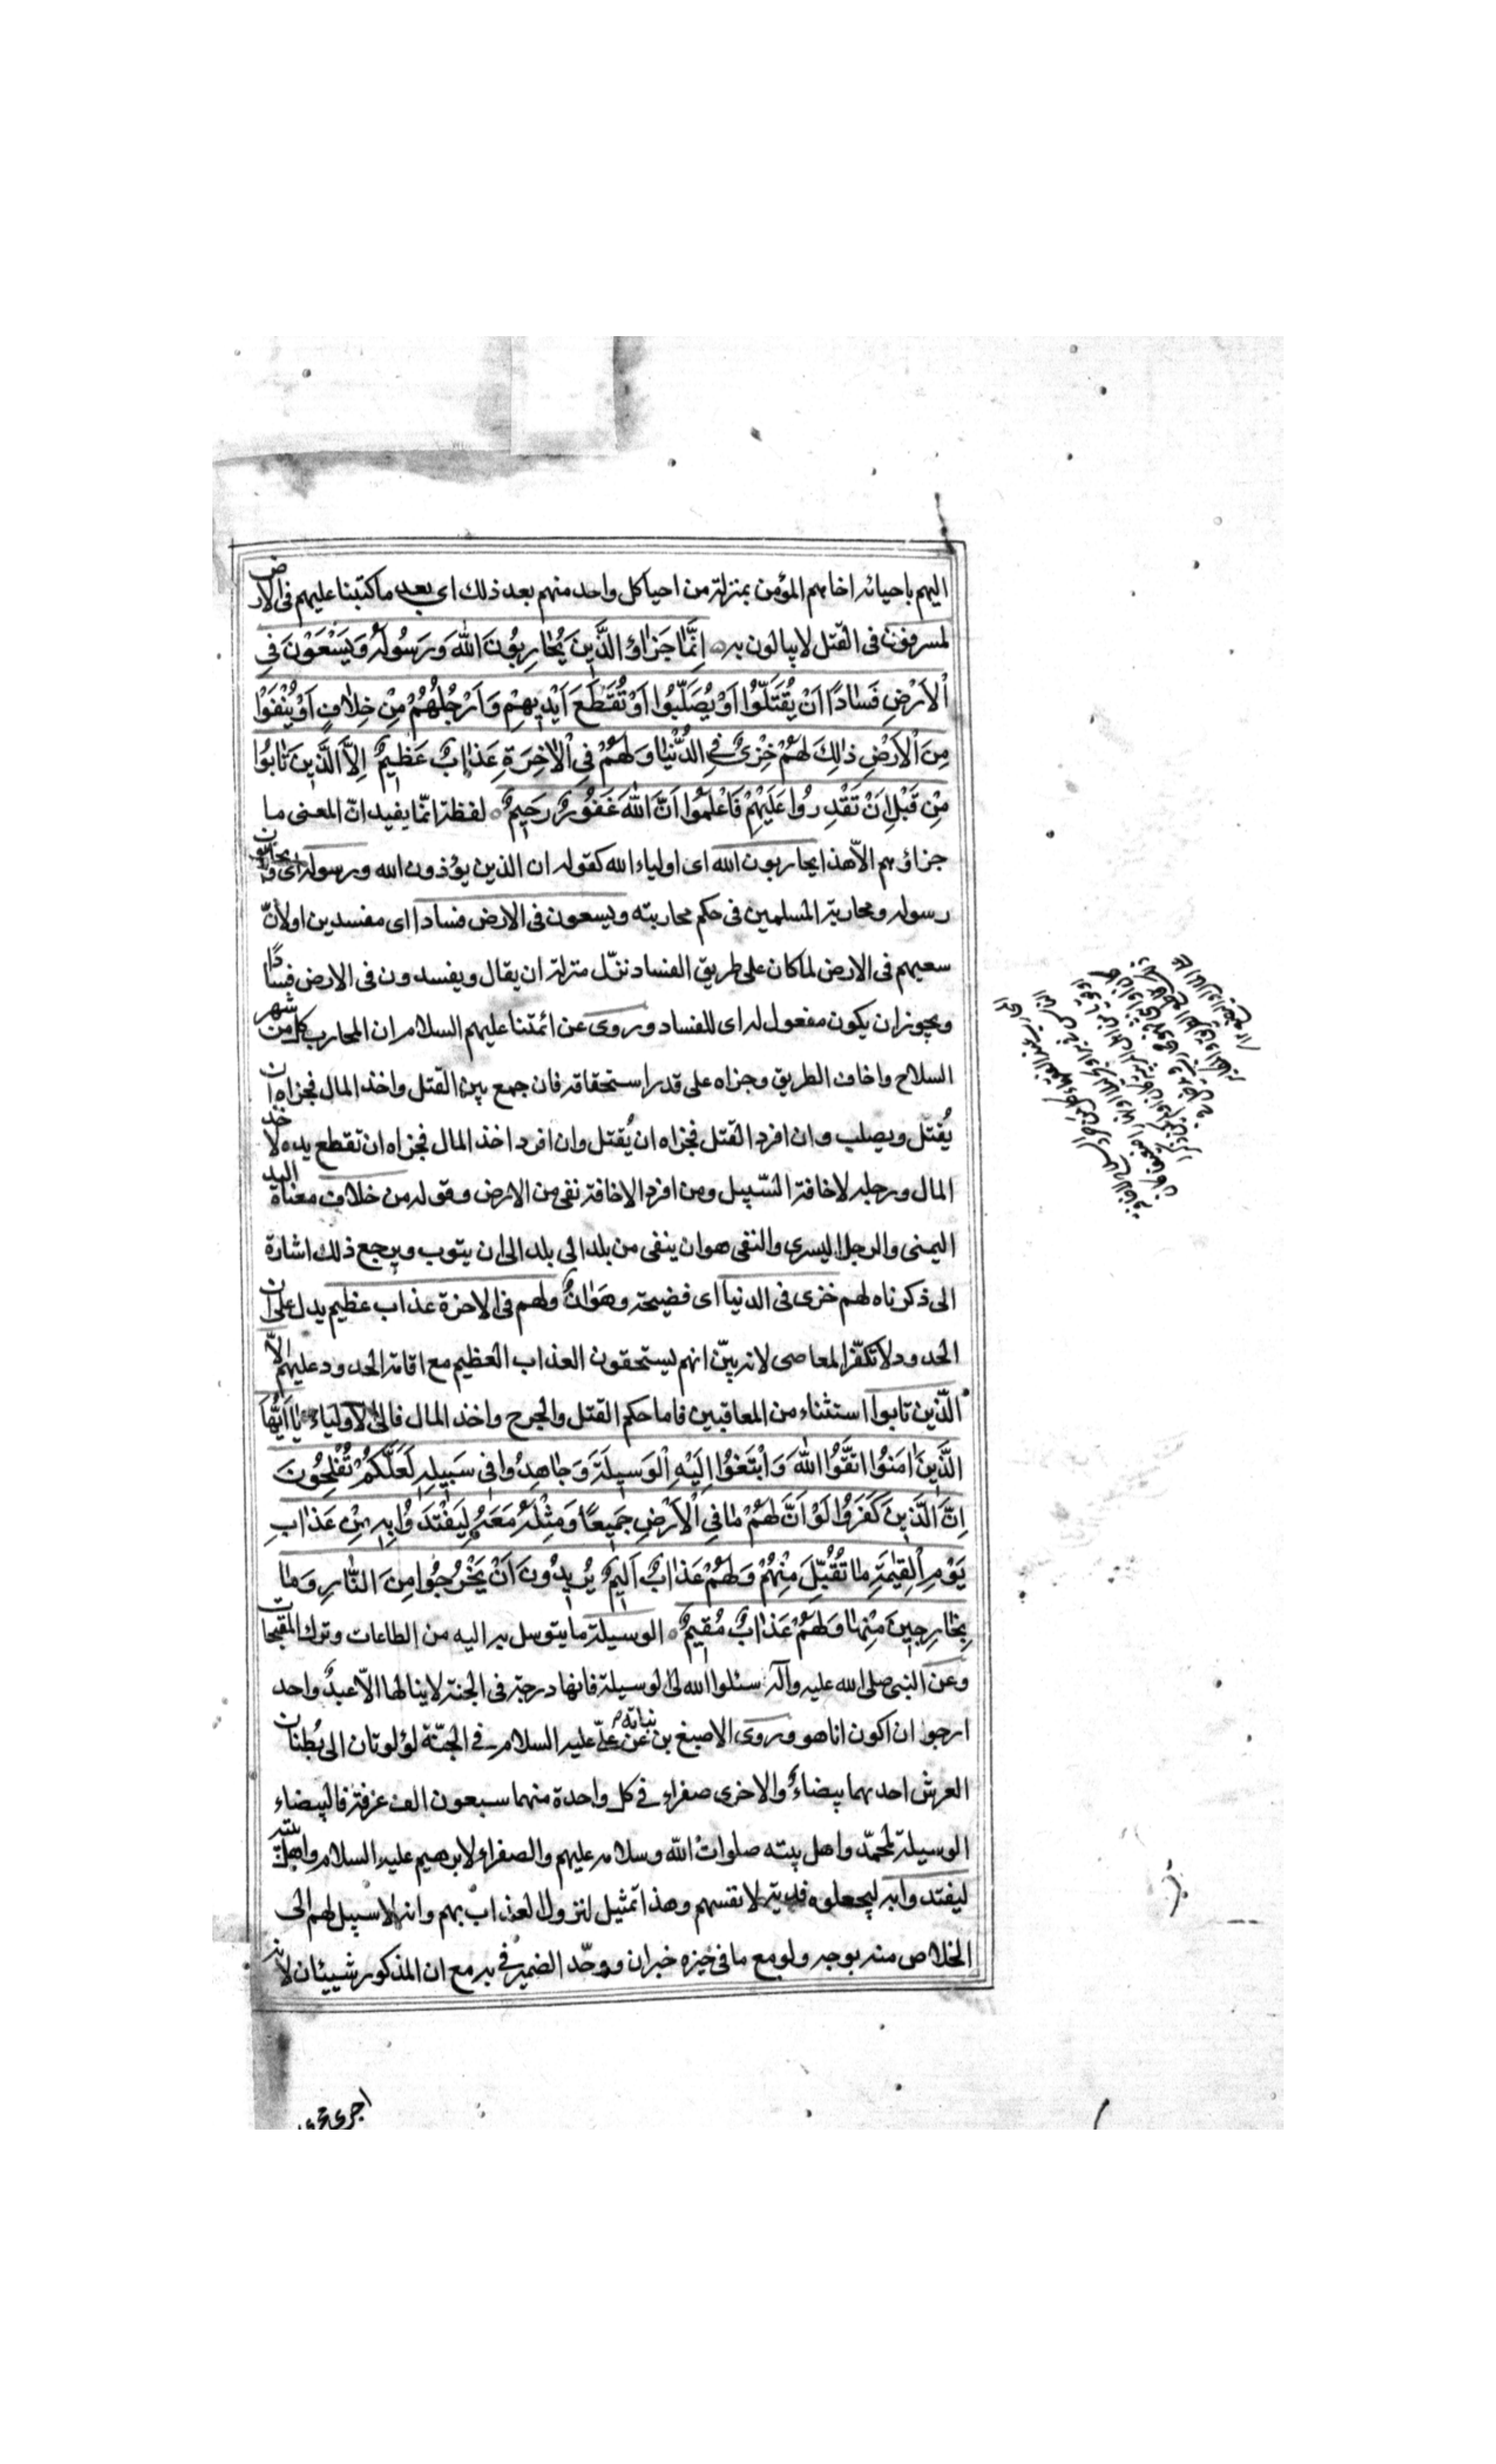 اليهم باحيائه اخاهم المؤمن بمنزلة من احيا كل واحد منهم بعد ذلك اى بعد ما كتبنا عليهم فى الارض
لمسرفون فى القتل لا يبالون به اِنَّمٰا جَزٰاؤُ الَّذِينَ يُحٰارِبُونَ اللهَ وَرَسُولَهُ وَيَسْعَوْنَ فِى
الْاَرْضِ فَسٰادًا اَنْ يُقَتَّلُوْا اَوْ يُصَلَّبُوا اَوْ تُقَطَّعَ اَيْدِيهِمْ وَاَرْجُلُهُمْ مِنْ خِلٰافٍ اَوْ يُنْفَوْا
مِنَ الْاَرْضِ ذٰلِكَ لَهُمْ خِزْىٌ فِى الدُّنْيٰا وَلَهُمْ فِى الْاٰخِرَةِ عَذٰابٌ عَظِيمٌ اِلَّا الَّذِينَ تٰابُوا
مِنْ قَبْلِ اَنْ تَقْدِرُوا عَلَيْهِمْ فَاعْلَمُوا اَنَّ اللهَ غَفُورٌ رَحِيمٌ لفظة انّما يفيد انّ المعنى ما
جزاؤهم الّا هذا يحاربون الله اى اولياء الله كقوله ان الذين يؤذون الله ورسوله اى ويحاربون
رسوله ومحاربة المسلمين فى حكم محاربته ويسعون فى الارض فسادا اى مفسدين اولانّ
سعيهم فى الارض لما كان على طريق الفساد نزّل منزلة ان يقال ويفسدون فى الارض فسادًا
ويجوز ان يكون مفعول له اى للفساد وروى عن ائمتنا عليهم السلام ان المحارب كل من شهر
السلاح واخاف الطريق وجزاه على قدر استحقاقه فان جمع بين القتل واخذ المال فجزاه ان
يُقتل ويصلب وان افرد القتل فجزاه ان يُقتل وان افرد اخذ المال فجزاه ان تقطع يده لاخذ
المال ورجله لاخافة السّبيل ومن افرد الاخافة نفى من الارض وقوله من خلاف معناه اليد
اليمنى والرجل اليسرى والنفى هو ان ينفى من بلد الى بلد الى ان يتوب ويرجع ذلك اشارة
الى ذكرناه لهم خزى فى الدنيا اى فضيحة وهَوٰانٌ ولهم فى الاخرة عذاب عظيم يدل على ان
الحدود لا تكفّر المعاصى لانه بيّن انهم يستحقون العذاب العظيم مع اقامة الحدود عليهم الّا
الّذين تابوا استثناء من المعاقبين فاما حكم القتل والجرح واخذ المال فالى الاولياء يٰا اَيُّهَا
الَّذِينَ اٰمَنُوا اتَّقُوا اللهَ وَابْتَغُوا اِلَيْهِ الْوَسِيلَةَ وَجٰاهِدُوا فِى سَبِيلِهِ لَعَلَّكُمْ تُفْلِحُونَ
اِنَّ الَّذِينَ كَفَرُوا لَوْ اَنَّ لَهُمْ مٰا فِى الْاَرْضِ جَمِيعًا وَمِثْلَهُ مَعَهُ لِيَفْتَدُوا بِهِ مِنْ عَذٰابِ
يَوْمِ الْقِيٰمَةِ مٰا تُقُبِّلَ مِنْهُمْ وَلَهُمْ عَذٰابٌ اَلِيمٌ يُرِيدُونَ اَنْ يَخْرُجُوا مِنَ النّٰارِ وَمٰا
بِخٰارِجِينَ مِنْهٰا وَلَهُمْ عَذٰابٌ مُقِيمٌ الوسيلة ما يتوسل به اليه من الطاعات وترك المقبحات
وعن النبى صلى الله عليه وآله سئلوا الله لى الوسيلة فانها درجة فى الجنة لا ينالها الّا عبدٌ واحد
ارجوا ان اكون انا هو وروى الاصبغ بن نباته عن علىّ عليه السلام فى الجنّة لؤلؤتان الى بُطنان
العرش احديهما بيضاءُ والاخرى صفراء فى كل واحدة منهما سبعون الف غرفة فالبيضاء
الوسيلة لمحمّد واهل بيته صلوات الله وسلامه عليهم والصفراء لابرهيم عليه السلام واهل بيته
ليفتدوا به ليجعلوه فدية لانفسهم وهذا تمثيل لنزول العذاب بهم وانه لا سبيل لهم الى
الخلاص منه بوجه ولو مع ما فى حيزه خبر ان ووحّد الضمير فى به مع ان المذكور شيئان لانه
اجرى